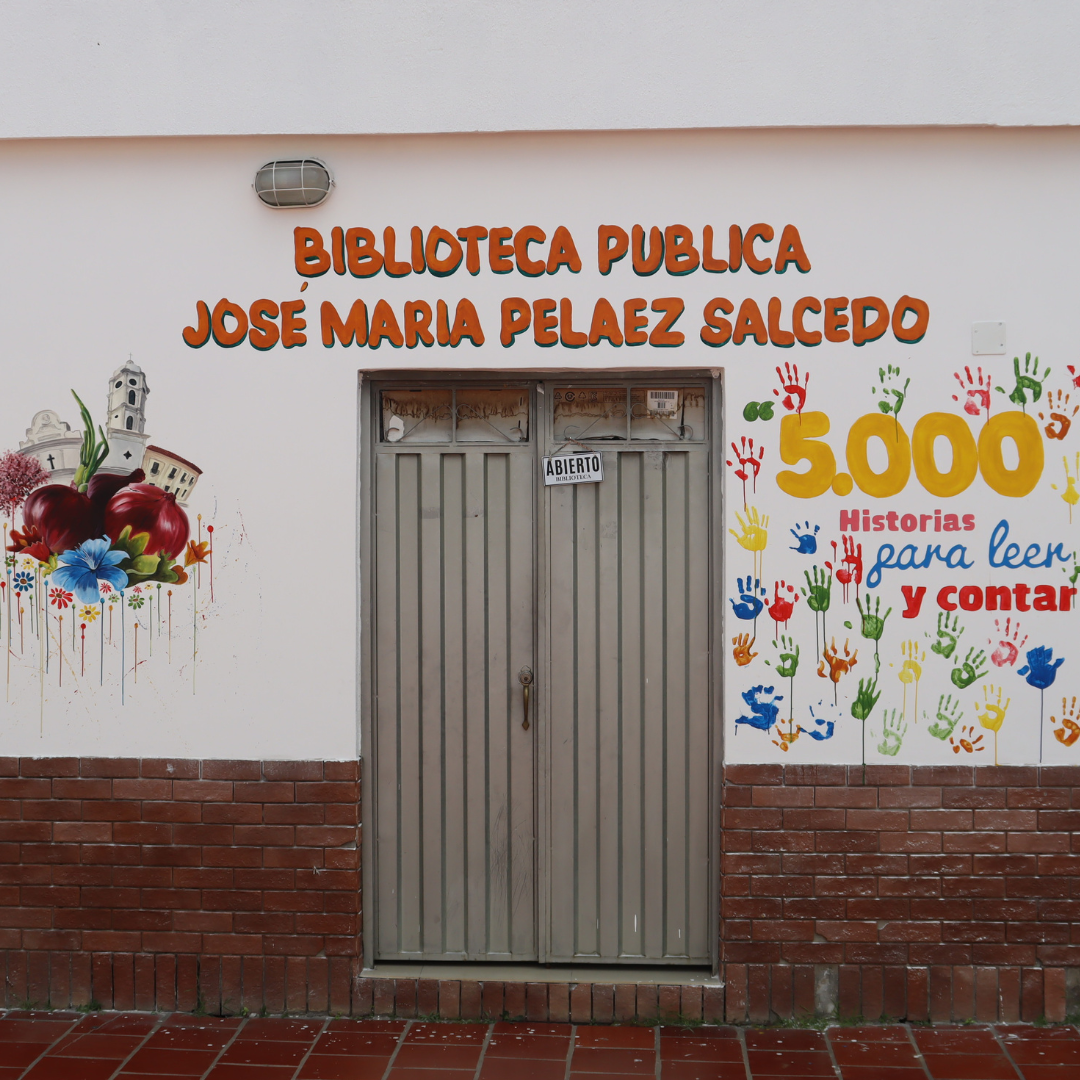 BIBLIOTECA PUBLICA
JOSÉ MARIA PELAEZ SALCEDO
ABIERTO
BIBLIOTECA
5.000
Historias
para leer
y contar